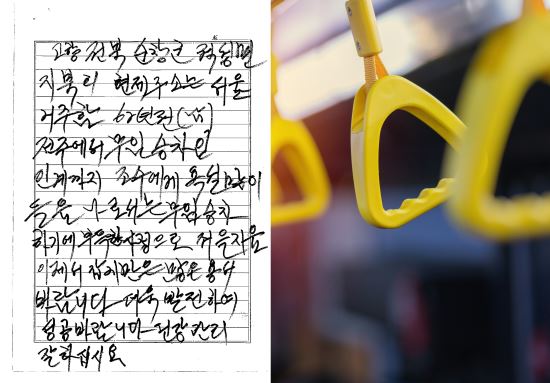 고향 전북 순창군 적성면
지북리 현제주소는 서울
거주함 62년전
전주에서 무임 승차로
인계까지 조수에게 욕설 많이
들음 로서는 무임 승차
하기에 사정으로 적은차율
이제서 갚지만은 많은 용서
바랍니다 더욱 발전하여
성공바랍니다 건강관리
잘하십시요